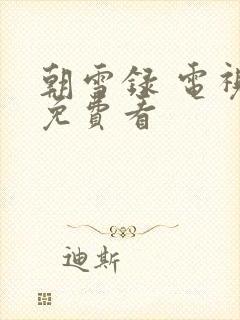 朝雪録 電視
免費看
迪斯